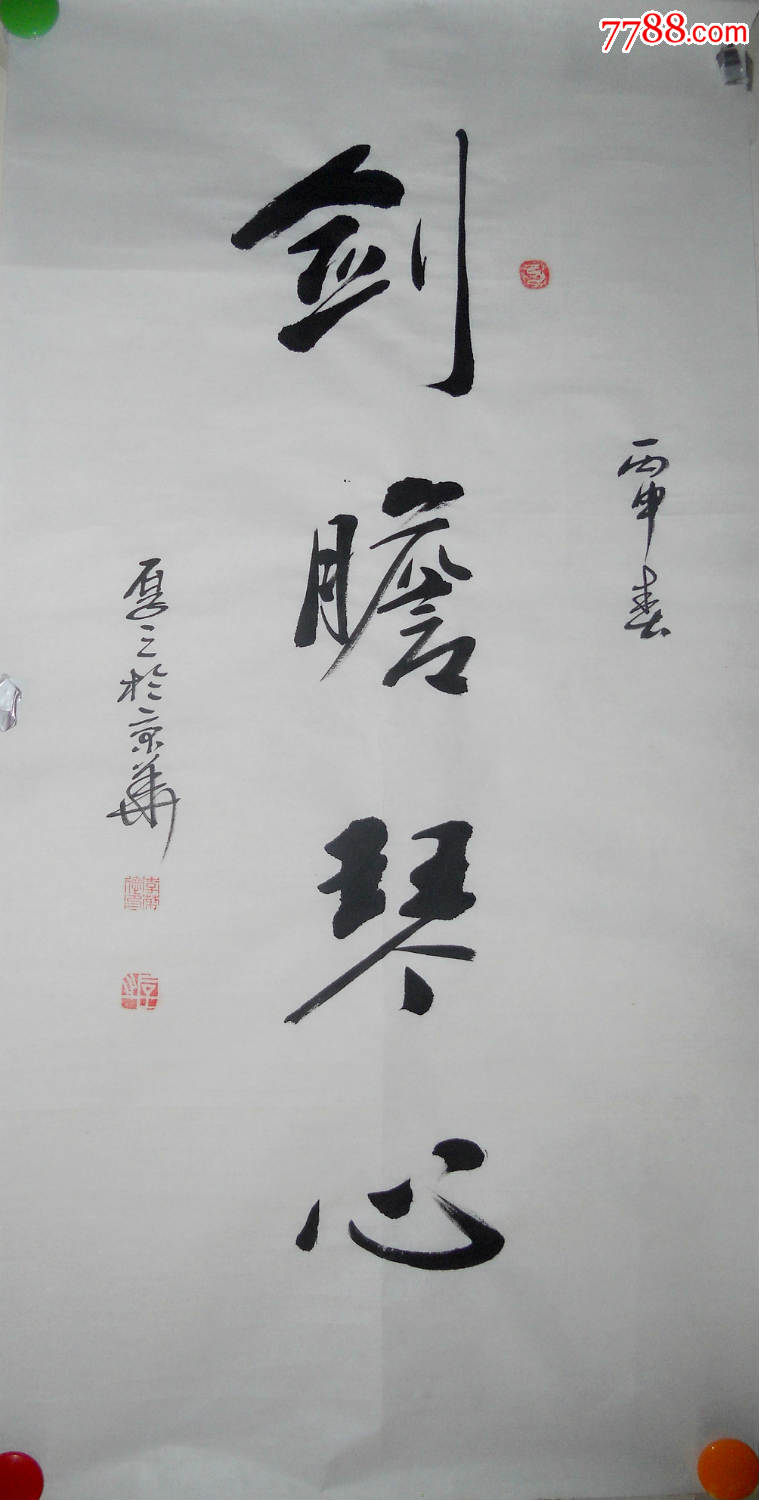 7788.com
丙申春
剑膽琴心
厚之於京華